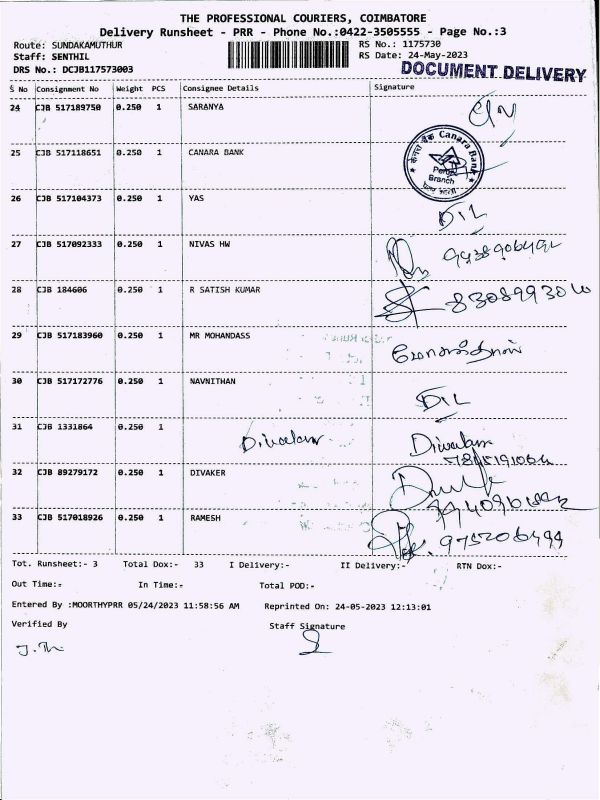 THE PROFESSIONAL COURIERS, COIMBATORE
Delivery Runsheet - PRR - Phone No.:0422-3505555 - Page No.:3
Route: SUNDAKAMUTHUR RS No.: 1175730
Staff: SENTHIL RS Date: 24-May-2023
DRS No.: DCJB117573003 DOCUMENT DELIVERY
S No Consignment No Weight PCS Consignee Details Signature
24 CJB 517189750 0.250 1 SARANYA
25 CJB 517118651 0.250 1 CANARA BANK
केनरा बैंक Canara Bank
Branch
26 CJB 517104373 0.250 1 YAS DIL
27 CJB 517092333 0.250 1 NIVAS HW
28 CJB 184606 0.250 1 R SATISH KUMAR
29 CJB 517183960 0.250 1 MR MOHANDASS மோகன்தாஸ்
30 CJB 517172776 0.250 1 NAVNITHAN DIL
31 CJB 1331864 0.250 1
32 CJB 89279172 0.250 1 DIVAKER
33 CJB 517018926 0.250 1 RAMESH
Tot. Runsheet:- 3 Total Dox:- 33 I Delivery:- II Delivery:- RTN Dox:-
Out Time:- In Time:- Total POD:-
Entered By :MOORTHYPRR 05/24/2023 11:58:56 AM Reprinted On: 24-05-2023 12:13:01
Verified By Staff Signature